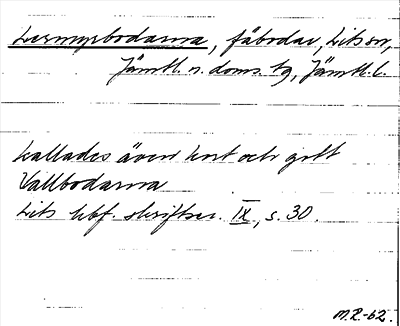 Lismyrbodarna, fäbodar, Lits sn,
Jämtl. n. doms. tg, Jämtl. l.
kallades även kort och gott
Vallbodarna
Lits hbf. skriftser. IX, s. 30.
M.R.-62.